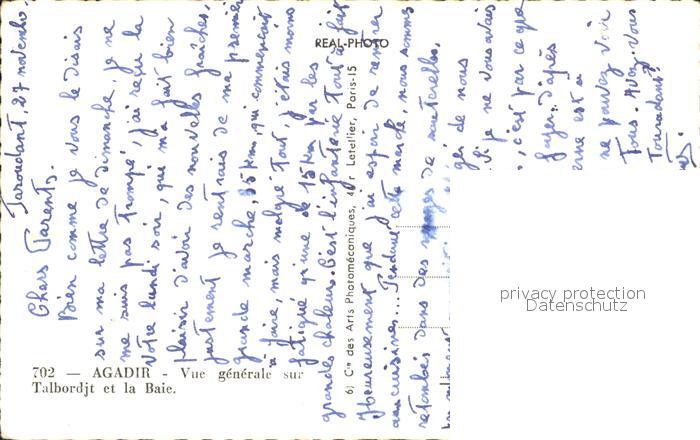 Taroudant, 27 novembre.
Chers Parents.
Bien comme je vous le disais
sur ma lettre de dimanche, je ne
me suis pas trompé, j'ai reçu la
votre lundi soir, qui m'a fait bien
plaisir d'avoir des nouvelles fraîches,
justement je rentrais de ma première
grande marche, 35 km, qui commençait
à faire, mais malgré tout, j'étais moins
fatigué qu'une de 15 km par les
grandes chaleurs. C'est l'infanterie tout à fait
Heureusement que j'ai espoir de rentrer
aux cuisines... Pendant cette marche, nous sommes
retombés dans des nuages de sauterelles,
ger de nous
Si je ne vous avais
, c'est par ce que
foyer, d'après
est a
ne pouvez voir
Tous. Avez-vous
Taroudant?
REAL-PHOTO
6) Cie des Arts Photomécaniques, 44 r Letellier, Paris-15
702 — AGADIR - Vue générale sur
Talbordjt et la Baie.
privacy protection
Datenschutz